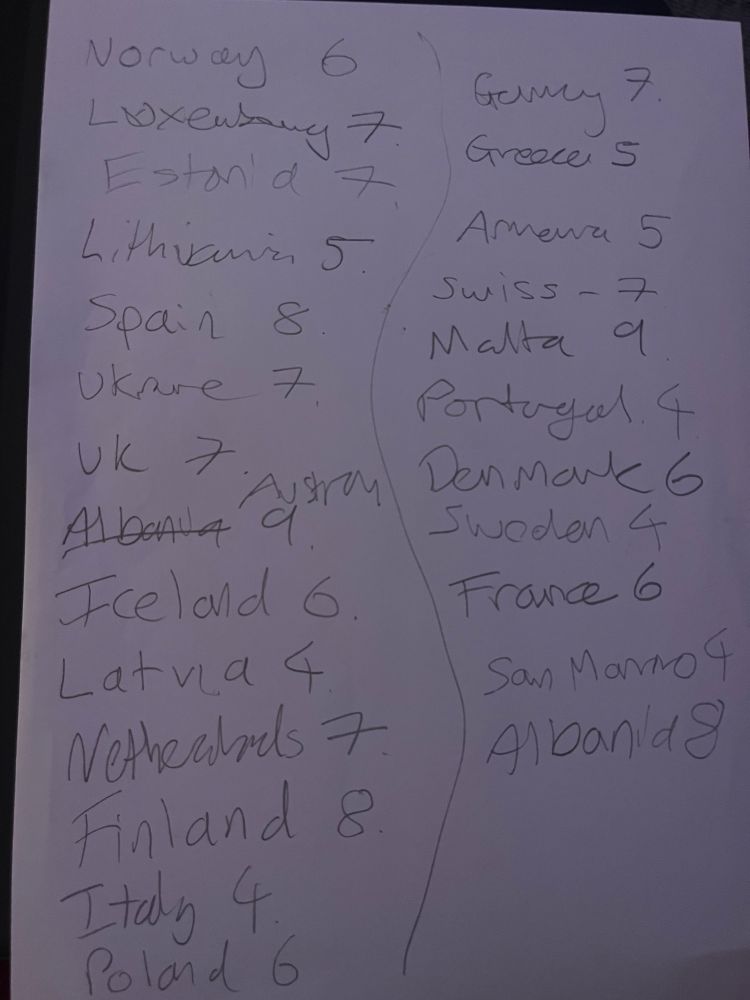 Norway 6
Luxenbourg 7.
Estonia 7.
Lithuania 5.
Spain 8.
Ukraine 7.
UK 7.
Austria
Albania 9.
Iceland 6.
Latvia 4.
Netherlands 7.
Finland 8.
Italy 4.
Poland 6
Germny 7.
Greece 5
Armenia 5
Swiss - 7
Malta 9.
Portugal. 4
Denmark 6
Sweden 4
France 6
San Marino 4
Albania 8